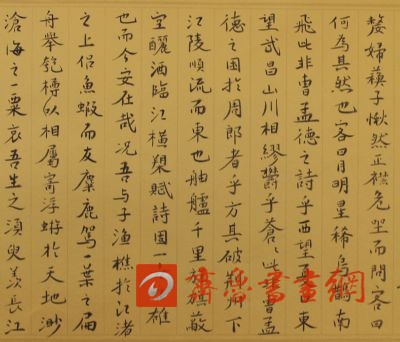 嫠婦蘇子愀然正襟危坐而問客曰
何為其然也客曰月明星稀烏鵲南
飛此非曹孟德之詩乎西望夏口東
望武昌山川相繆鬱乎蒼〻此曹孟
德之困於周郎者乎方其破荊州下
江陵順流而東也舳艫千里旌旗蔽
空釃酒臨江橫槊賦詩固一雄
也而今安在哉況吾與子漁樵於江渚
之上侶魚蝦而友麋鹿駕一葉之扁
舟舉匏樽以相屬寄浮蝣於天地渺
滄海之一粟哀吾生之須臾羨長江
齊魯書畫網